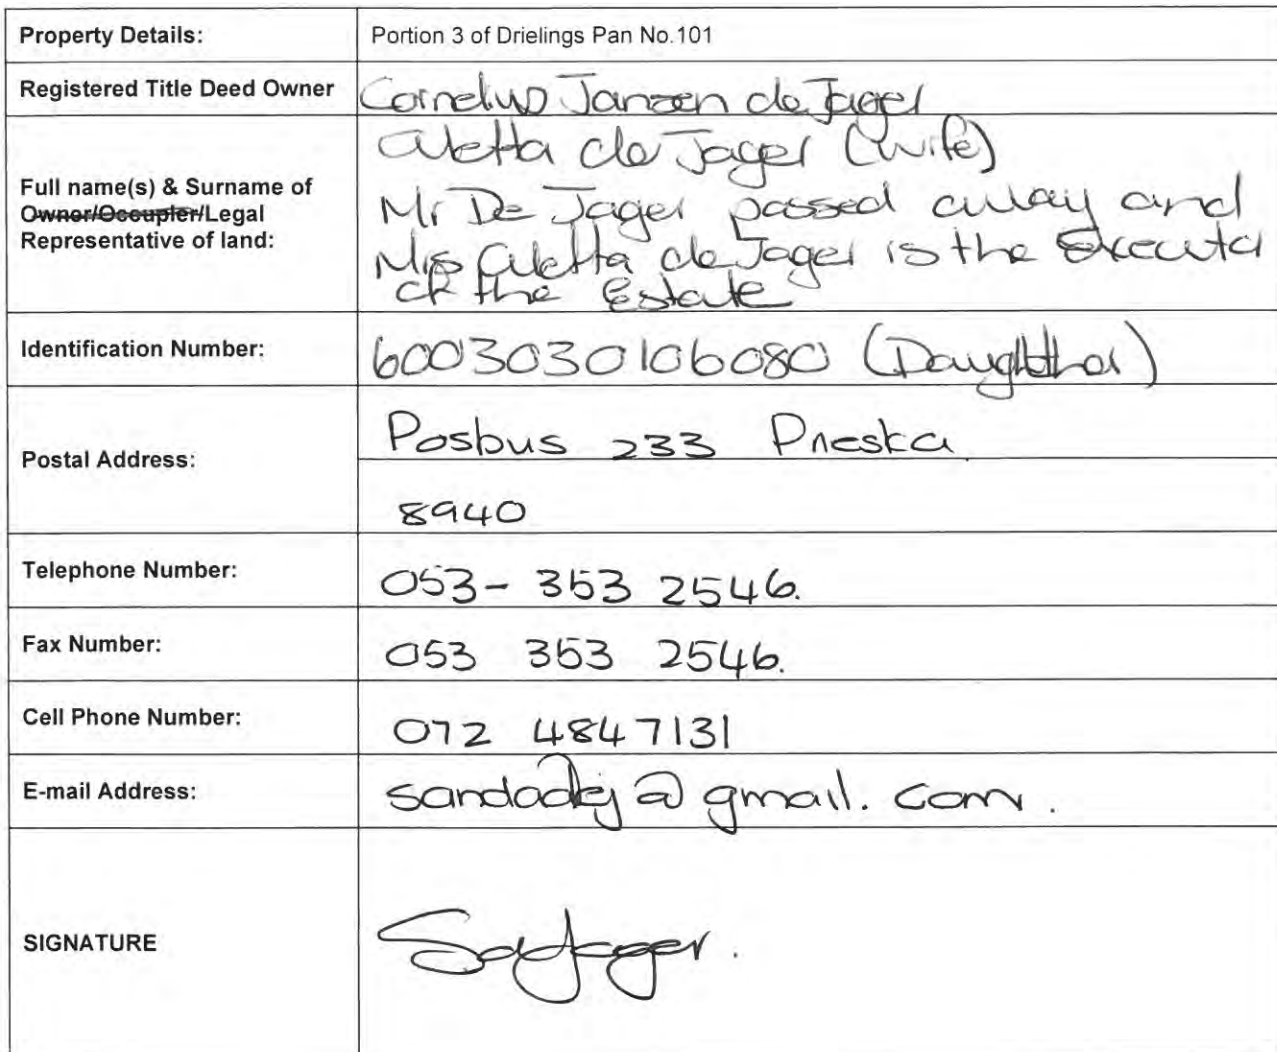 Property Details:
Portion 3 of Drielings Pan No.101
Registered Title Deed Owner
Cornelius Janzen de Jager
Full name(s) & Surname of
Owner/Occupier/Legal
Representative of land:
Aletta de Jager (wife)
Mr De Jager passed away and
Mrs Aletta de Jager is the Executor
of the Estate
Identification Number:
6003030106080 (Daughthor)
Postal Address:
Posbus 233 Prieska
8940
Telephone Number:
053-353 2546.
Fax Number:
053 353 2546.
Cell Phone Number:
072 4847131
E-mail Address:
@gmail.com.
SIGNATURE